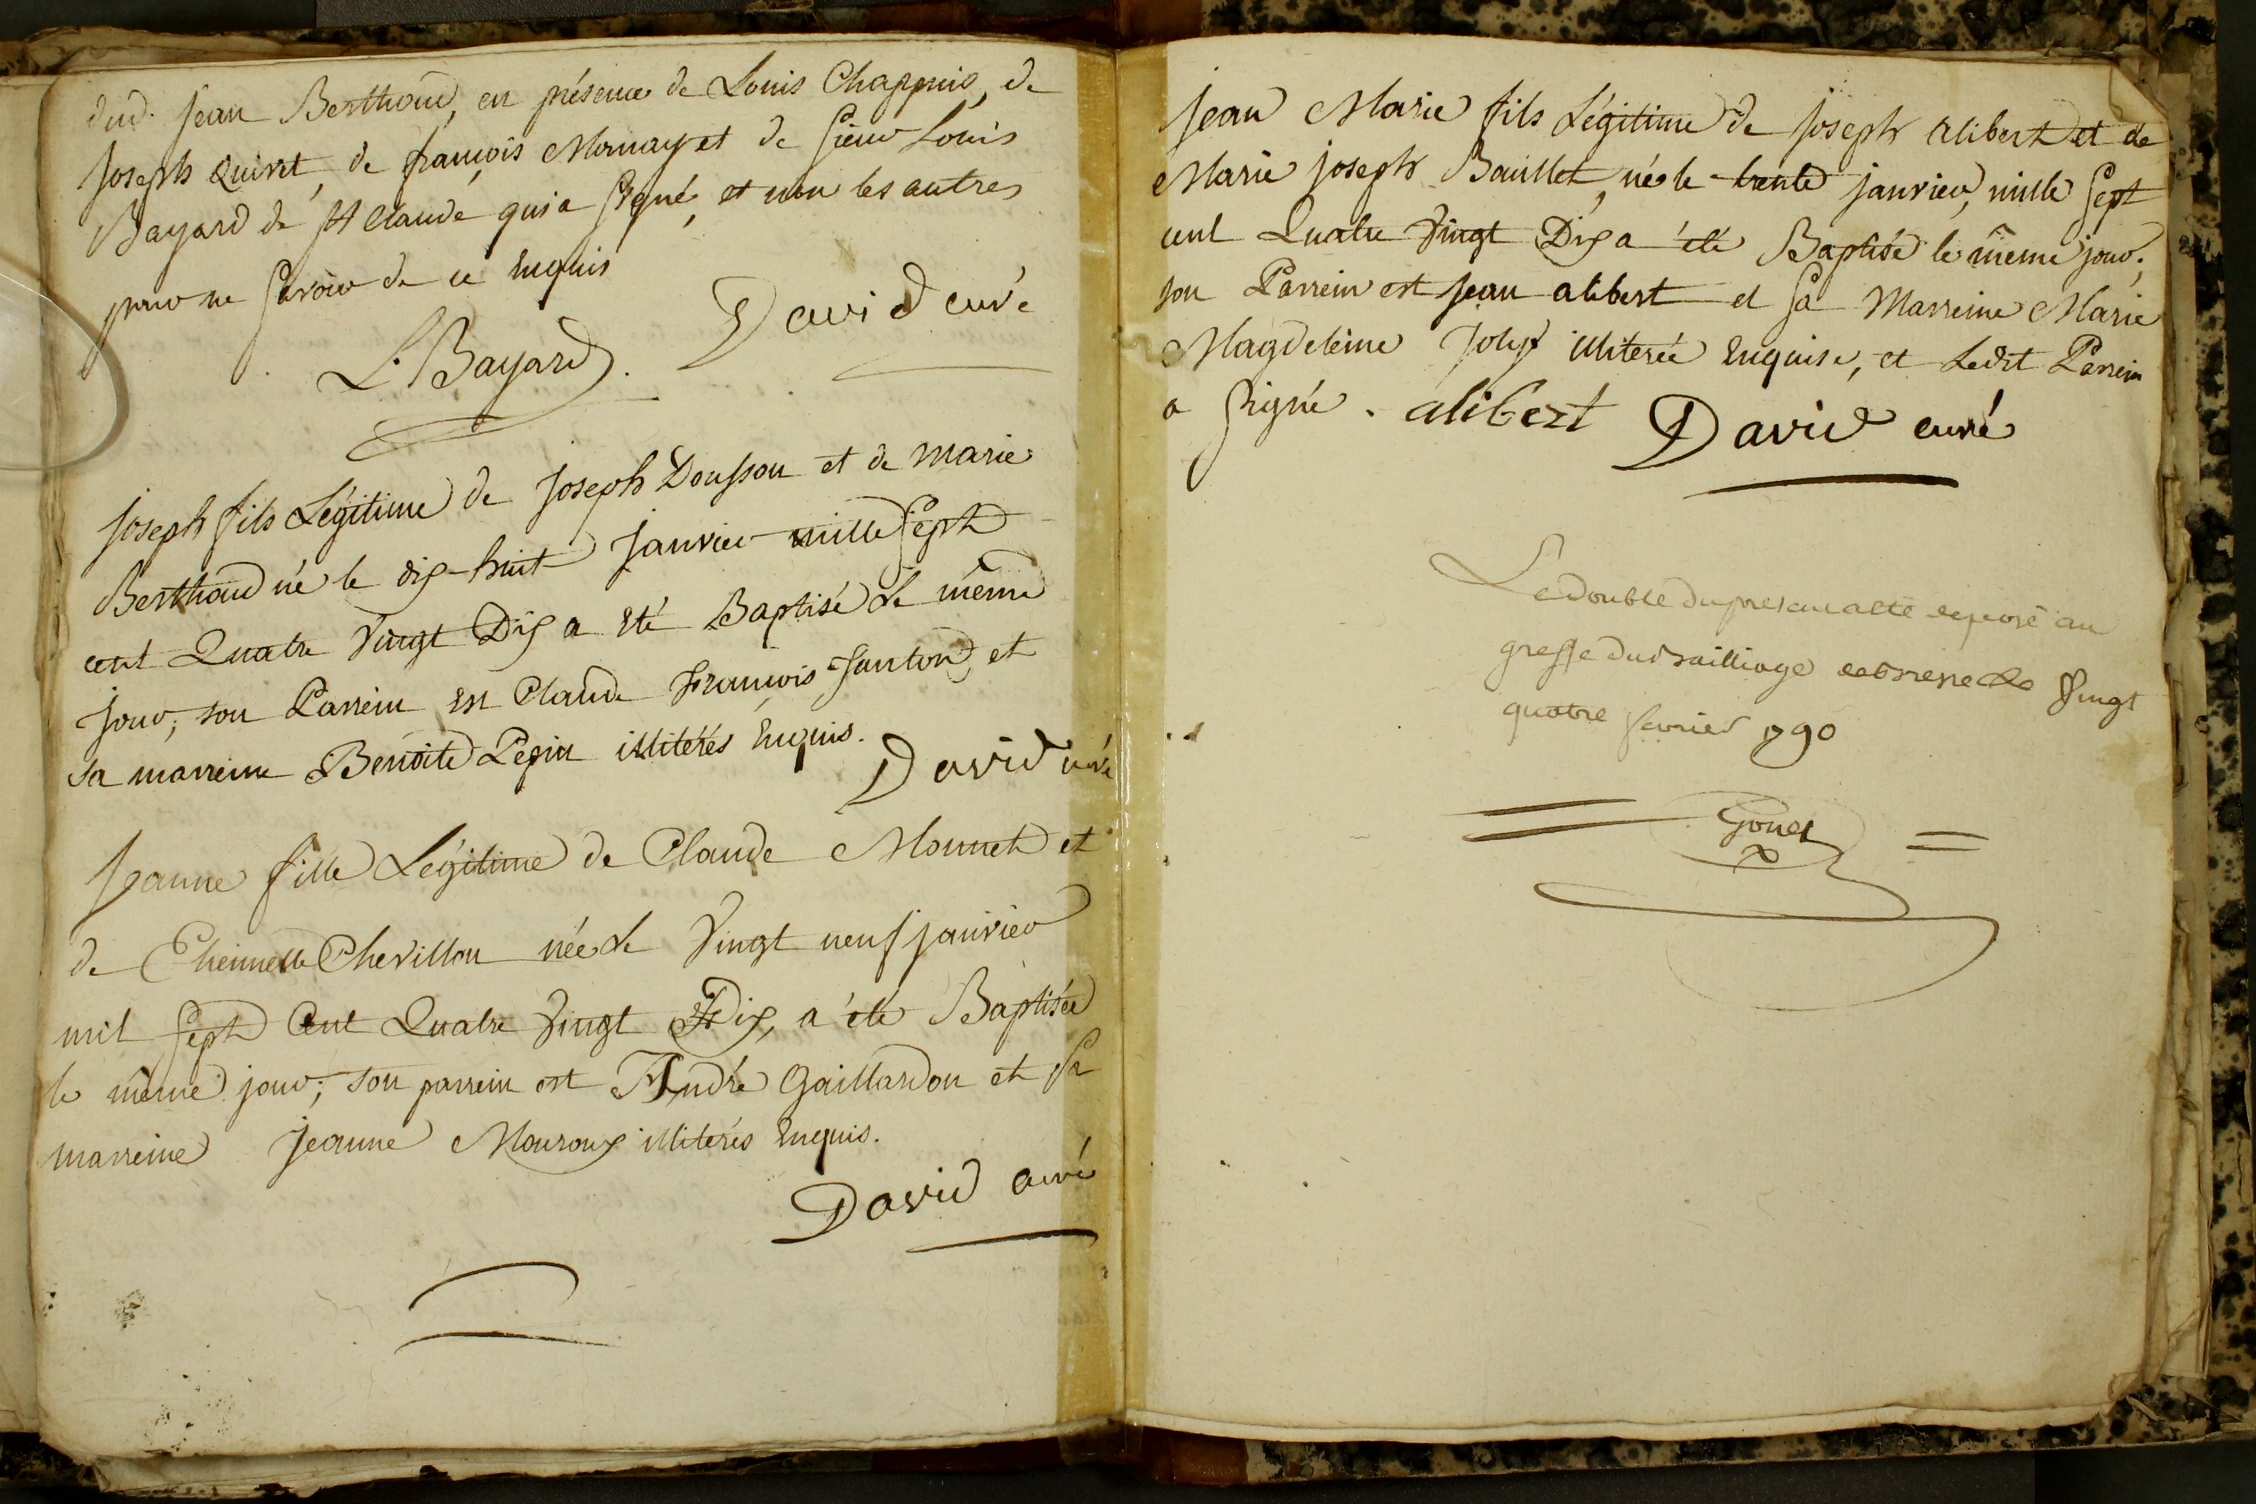 dud. Jean Berthoud, en présence de Louis Chappuis, de
Joseph Quiret, de françois Mornay et de Sieur Louis
Bayard de St Claude qui a signé, et non les autres
pour ne savoir de ce Enquis
L. Bayard. David curé
Joseph fils Légitime de Joseph Dousson et de marie
Berthoud né le dix-huit Janvier mille Sept
cent Quatre Vingt Dix a été Baptisé Le même
jour; son Parrein est Claude François Janton, et
sa marreine Benoite Pepin illiterés Enquis.
David curé
Jeanne fille Légitime de Claude Monnet et
de Etiennette Chevillon née Le Vingt neuf janvier
mil Sept Cent Quatre Vingt Dix, a été Baptisée
le même jour; son parrein est André Gaillardon et Sa
marreine Jeanne Mouroux illiterés Enquis.
David curé
Jean Marie fils Légitime de Joseph alibert et de
Marie Joseph Baullet, né le trente janvier, mille Sept
cent Quatre Vingt Dix a été Baptisé le même jour;
son Parrein est Jean alibert et Sa Marreine Marie
Magdeleine Joly illiterée Enquise, et Ledit Parrein
a Signé. alibert David curé
Le double du present acte deposé au
greffe du Bailliage de Bresse Le Vingt
quatre fevrier 1790